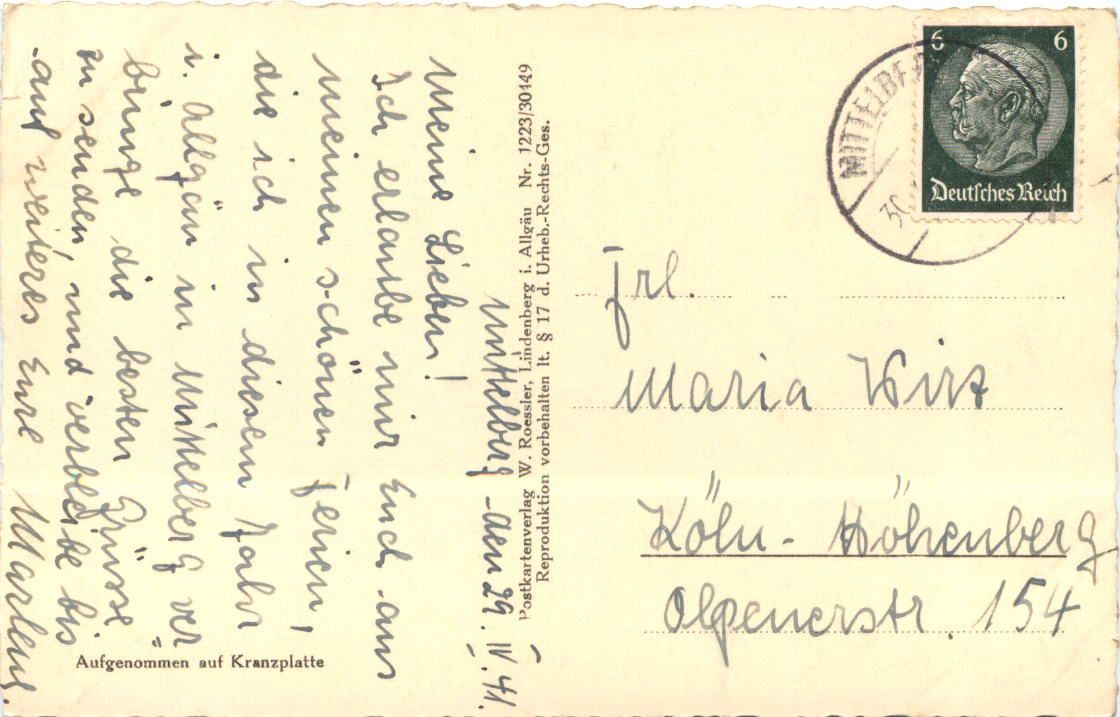 Mittelberg den 29. IV. 41.
Meine Lieben!
Ich erlaube mir Euch aus
meinen schönen Ferien,
die ich in diesem Jahr
i. Allgäu in Mittelberg ver
bringe die besten Grüsse
zu senden, und verbleibe bis
auf weiteres Eure Marlene.
Aufgenommen auf Kranzplatte
Postkartenverlag W. Roessler, Lindenberg i. Allgäu Nr. 1223/30149
Reproduktion vorbehalten lt. § 17 d. Urheb.-Rechts-Ges.
6 6
Deutsches Reich
30
Frl.
Maria Wirz
Köln-Höhenberg
Olpenerstr. 154